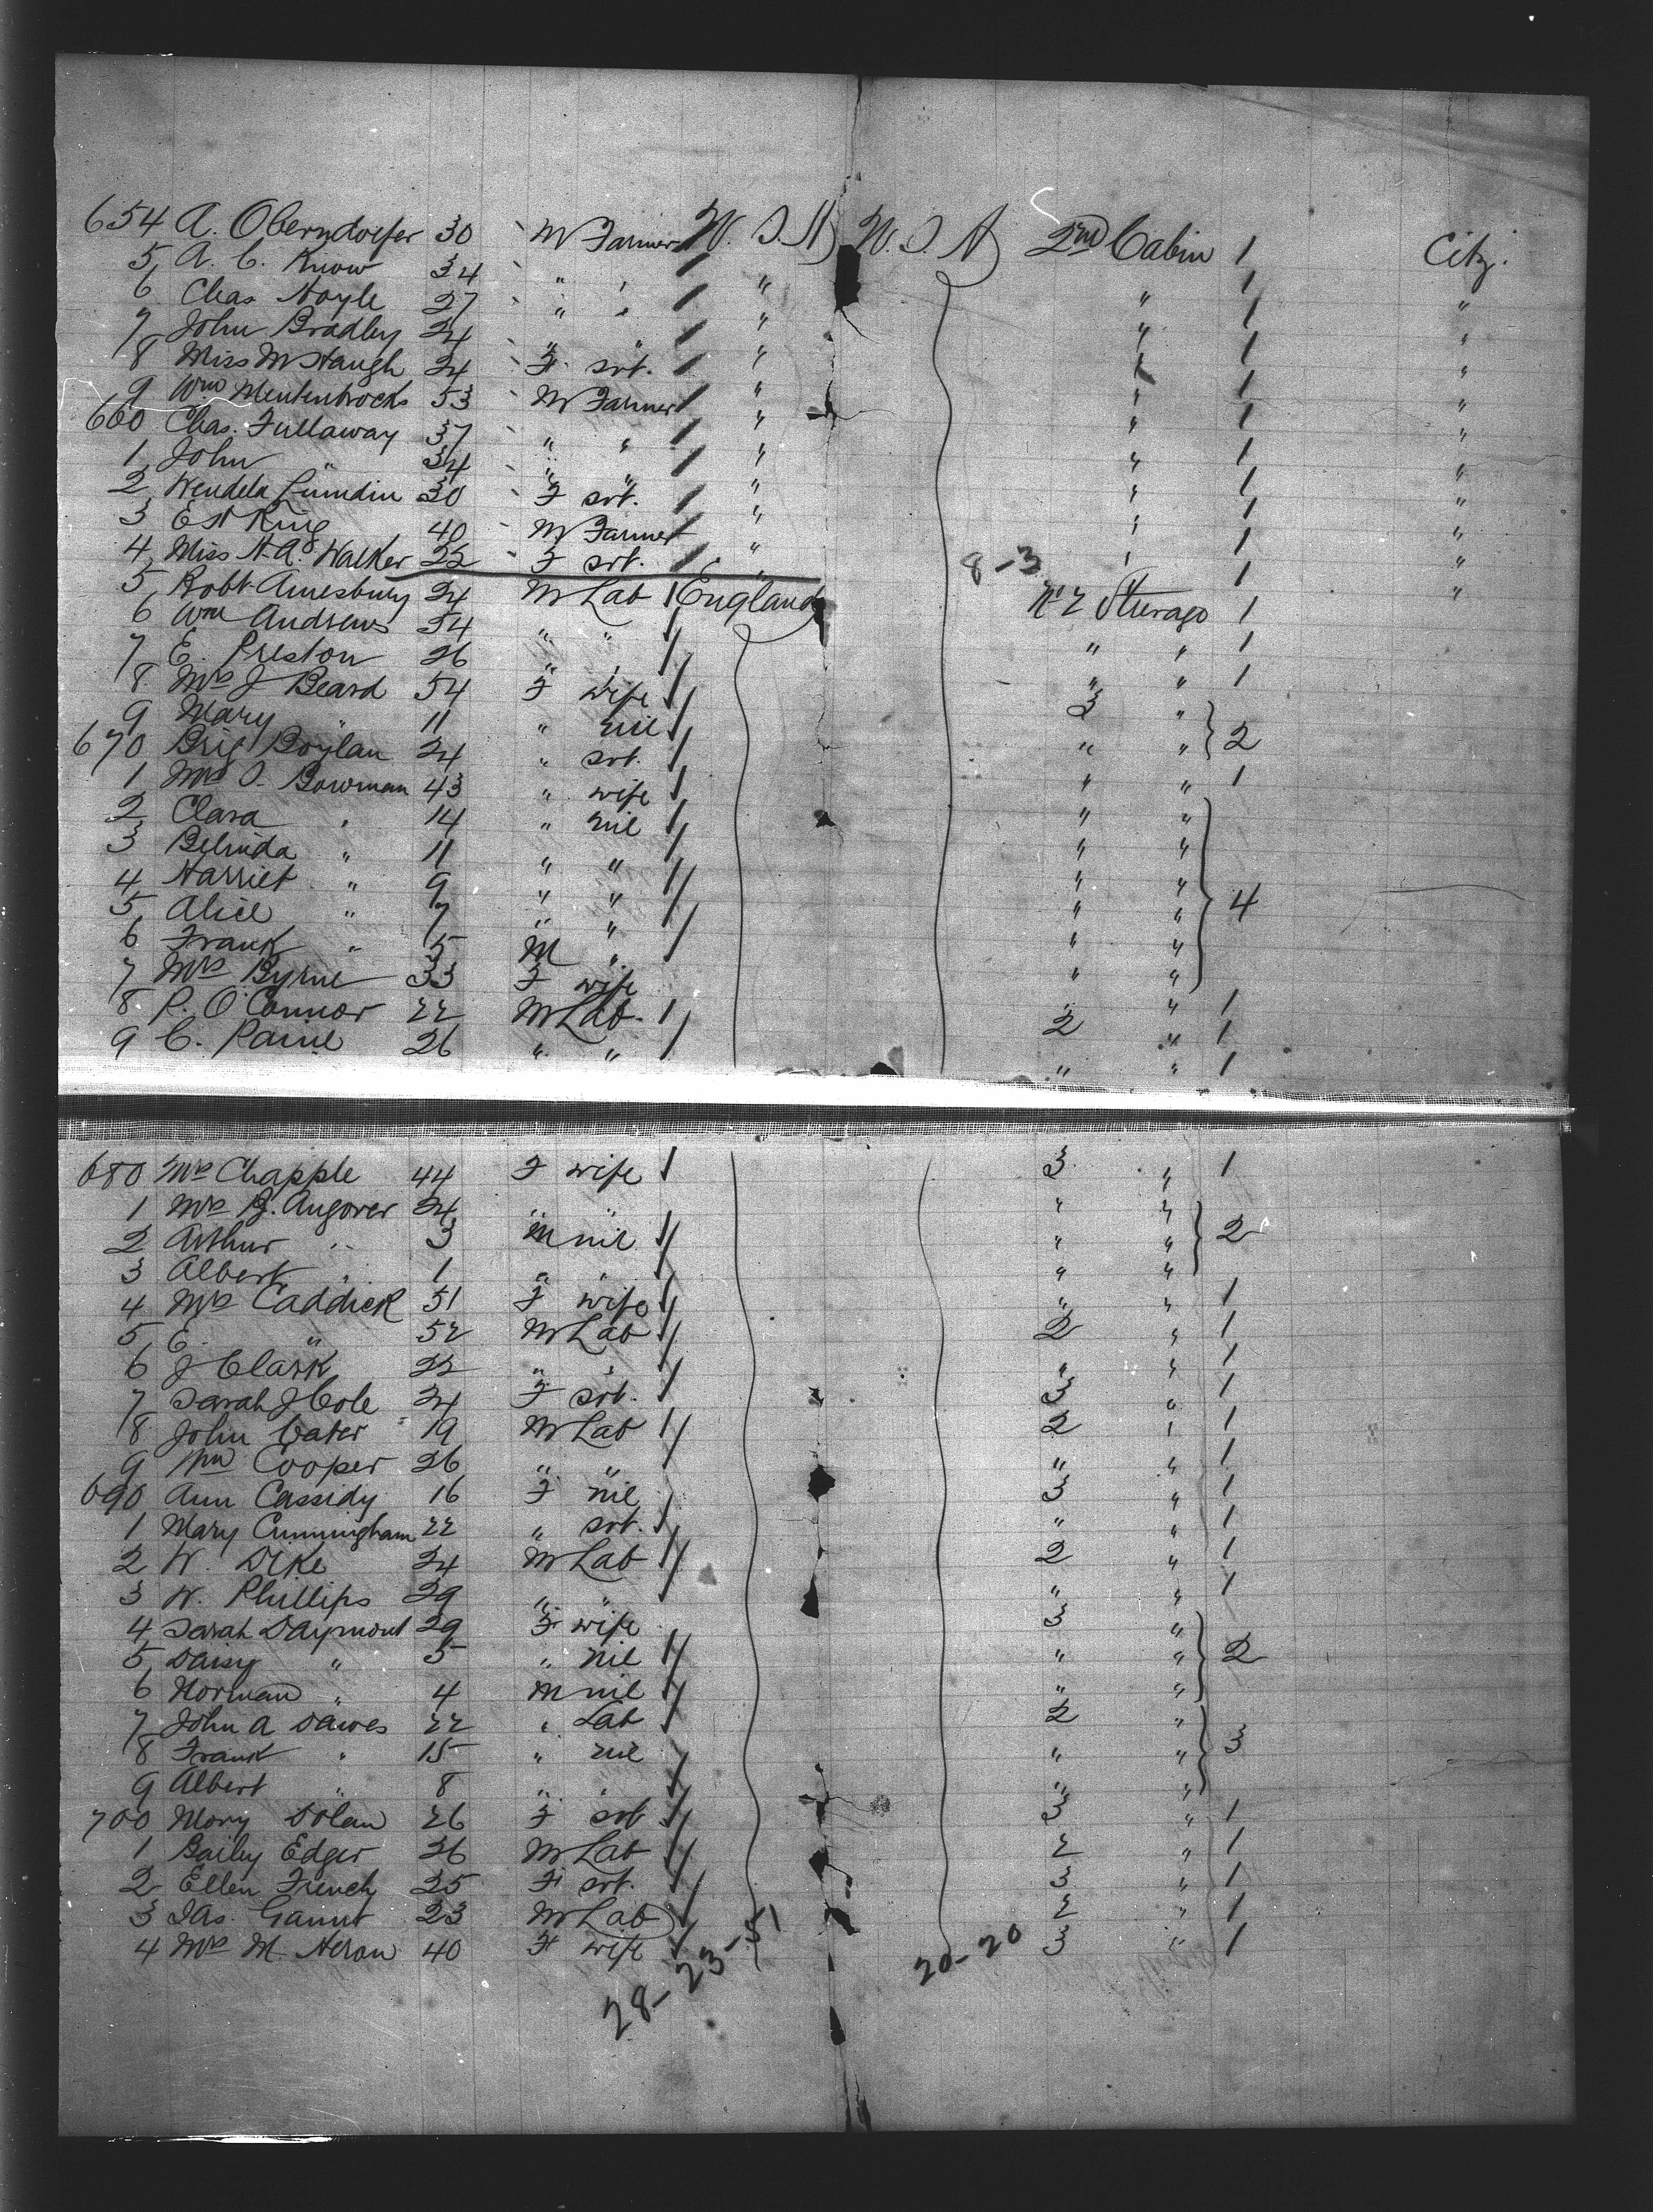 654 A. Oberndorfer 30 M Farmer U.S.A U.S.A 2nd Cabin 1 Citz.
5 A. C. Know 34 " " " " 1 "
6 Chas Hoyle 27 " " " " 1 "
7 John Bradley 24 " " " " 1 "
8 Miss M Haugh 24 F srt. " " 1 "
9 Wm Mentenbrocks 53 M Farmer " " 1 "
660 Chas. Fullaway 37 " " " " 1 "
1 John " 34 " " " " 1 "
2 Wendela Lundin 30 F srt. " " 1 "
3 E H King 40 M Farmer " " 1 "
4 Miss H. A. Walker 22 F srt. " 8-3 " 1 "
5 Robt Amesbury 24 M Lab 1 England No 2 Sterage 1
6 Wm Andrews 54 " " 1 " " 1
7 E. Preston 26 " " 1 " " 1
8 Mrs J Beard 54 F wife 1 3 "
9 Mary " 11 " nil 1 " " 2
670 Brig Boylan 24 " srt. 1 " " 1
1 Mrs S. Bowman 43 " wife 1 " "
2 Clara " 14 " nil 1 " "
3 Belinda " 11 " " 1 " "
4 Harriet " 9 " " 1 " " 4
5 Alice " 7 " " 1 " "
6 Frank " 5 M " " "
7 Mrs Byrne 33 F wife " 1
8 P. O'Connor 22 M Lab. 1 2 " 1
9 C. Paine 26 " " 1 " " 1
680 Mrs Chapple 44 F wife 1 3 " 1
1 Mrs B. Angover 24 " " " "
2 Arthur " 3 M nil 1 " " 2
3 Albert " 1 " " 1 " "
4 Mrs Caddick 51 F wife 1 " " 1
5 E. " 52 M Lab 1 2 " 1
6 J Clark 22 " " 1 " " 1
7 Sarah J Cole 24 F srt. 1 3 " 1
8 John Cater 19 M Lab 1 2 " 1
9 Wm Cooper 26 " " " " 1
690 Ann Cassidy 16 F nil 3 " 1
1 Mary Cunningham 22 " srt. 1 " " 1
2 W. Dike 24 M Lab 1 2 " 1
3 W. Phillips 29 " " " " 1
4 Sarah Daymont 29 F wife 3 "
5 Daisy " 5 " nil 1 " " 2
6 Norman " 4 M nil 1 " "
7 John A Dawes 22 " Lab 1 2 "
8 Frank " 15 " nil " " 3
9 Albert " 8 " " 1 " "
700 Mary Dolan 26 F srt 1 3 " 1
1 Baily Edger 26 M Lab 1 2 " 1
2 Ellen French 25 F srt. 1 3 " 1
3 Jas. Gamut 23 M Lab 1 2 " 1
4 Mrs M. Heron 40 F wife 1 3 " 1
28-23-51 20-20